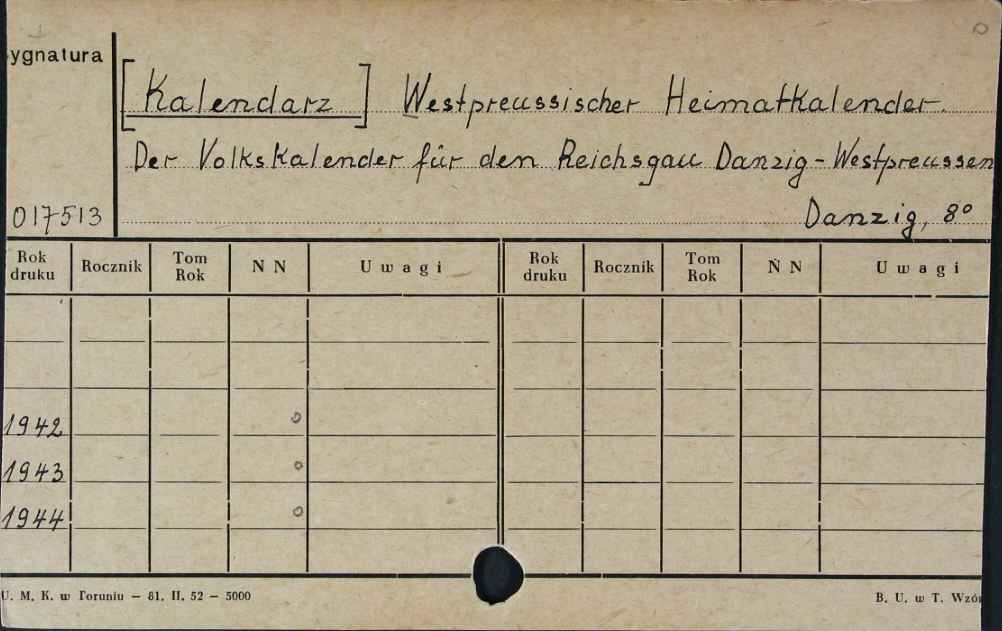 ygnatura
[Kalendarz] Westpreussischer Heimatkalender.
Der Volkskalender für den Reichsgau Danzig-Westpreussen
017513
Danzig, 8°
Rok druku Rocznik Tom Rok N N Uwagi Rok druku Rocznik Tom Rok N N Uwagi
1942
1943
1944
U. M. K. w Toruniu — 81. II. 52 — 5000
B. U. w T. Wzór